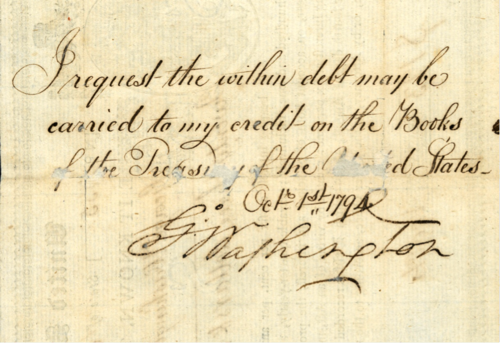 I request the within debt may be
carried to my credit on the Books
of the Treasury of the United States
Octr. 1st 1794
Go. Washington